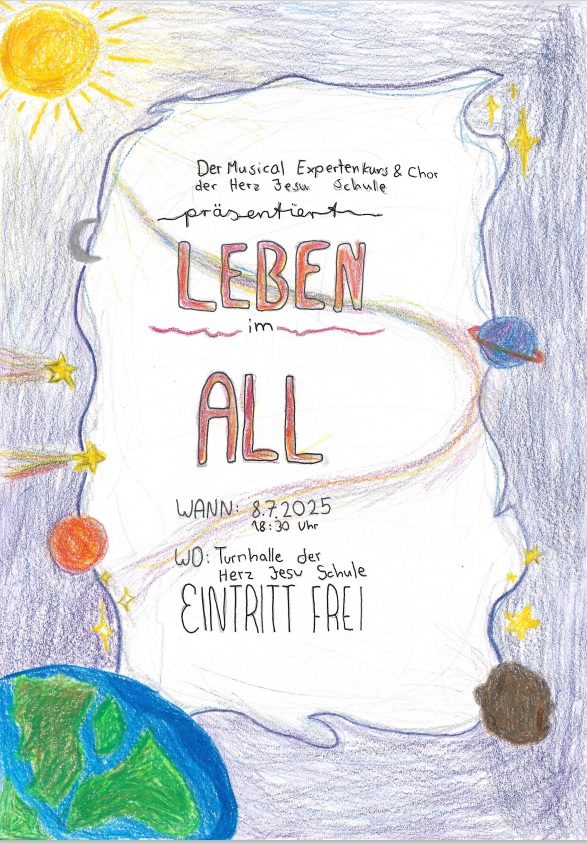 Der Musical Expertenkurs & Chor
der Herz Jesu Schule
präsentiert
LEBEN
im
ALL
WANN: 8.7.2025
18:30 Uhr
WO: Turnhalle der
Herz Jesu Schule
EINTRITT FREI